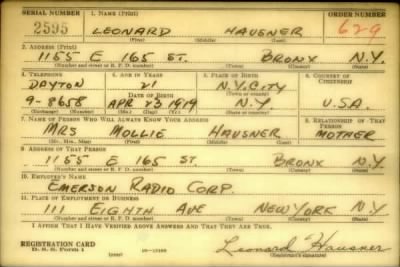 SERIAL NUMBER 1. NAME (Print) ORDER NUMBER
2595 LEONARD HAUSNER 629
(First) (Middle) (Last)
2. ADDRESS (Print)
1155 E 165 ST. BRONX N.Y.
(Number and street or R. F. D. number) (Town) (County) (State)
3. TELEPHONE 4. AGE IN YEARS 5. PLACE OF BIRTH 6. COUNTRY OF CITIZENSHIP
DAYTON 21 N.Y. CITY
DATE OF BIRTH (Town or county)
9-8658 APR 23 1919 N.Y. U.S.A.
(Exchange) (Number) (Mo.) (Day) (Yr.) (State or country)
7. NAME OF PERSON WHO WILL ALWAYS KNOW YOUR ADDRESS 8. RELATIONSHIP OF THAT PERSON
MRS MOLLIE HAUSNER MOTHER
(Mr., Mrs., Miss) (First) (Middle) (Last)
9. ADDRESS OF THAT PERSON
1155 E 165 ST BRONX N.Y
(Number and street or R. F. D. number) (Town) (County) (State)
10. EMPLOYER'S NAME
EMERSON RADIO CORP.
11. PLACE OF EMPLOYMENT OR BUSINESS
111 EIGHTH AVE NEW YORK N.Y
(Number and street or R. F. D. number) (Town) (County) (State)
I AFFIRM THAT I HAVE VERIFIED ABOVE ANSWERS AND THAT THEY ARE TRUE.
REGISTRATION CARD
D. S. S. Form 1 Leonard Hausner
(Registrant's signature)